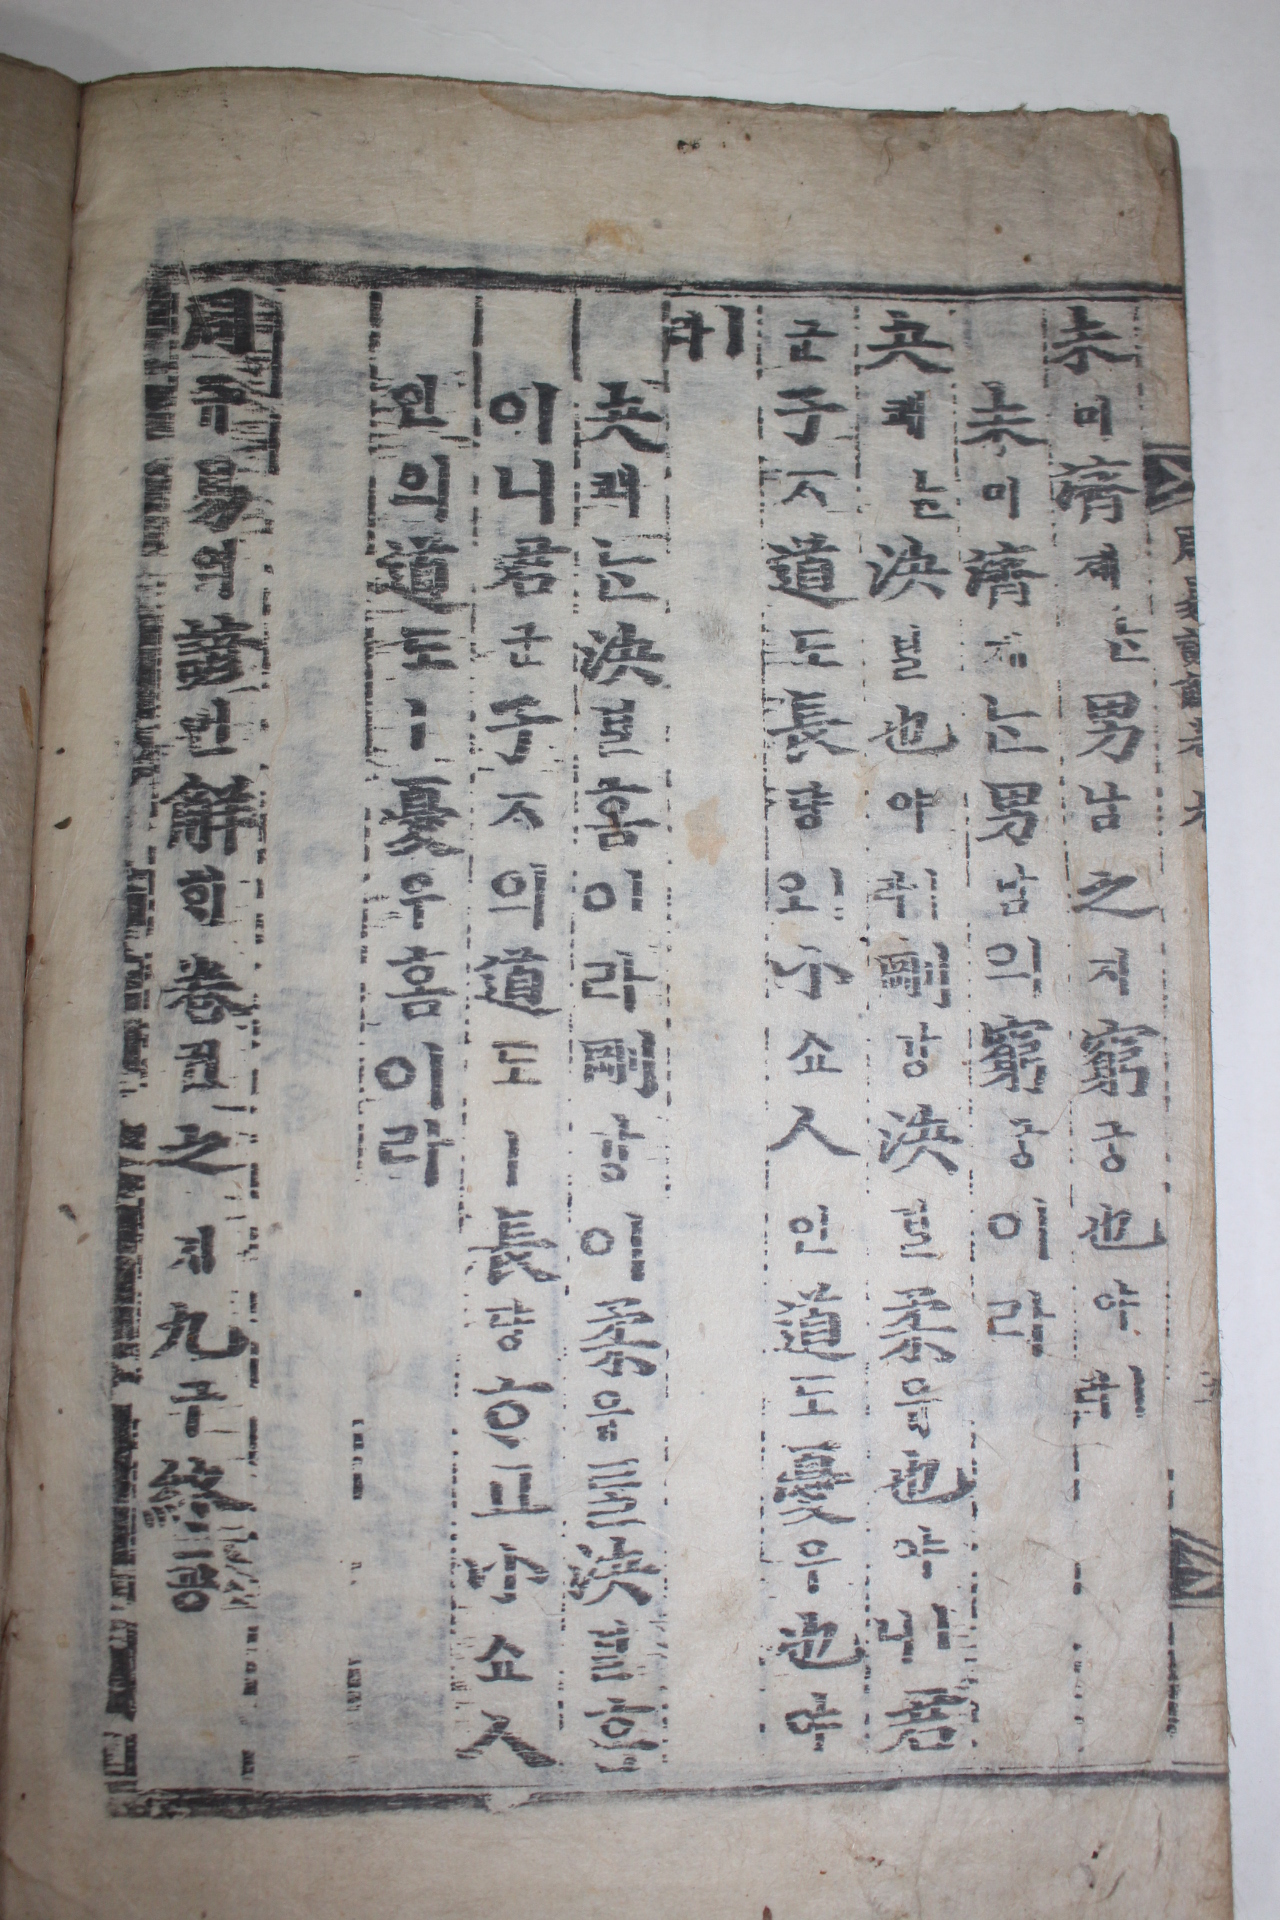 周易諺解卷 九
未미濟졔ᄂᆞᆫ男남之지窮궁也야ㅣ라
未미濟졔ᄂᆞᆫ男남의窮궁이라
夬쾌ᄂᆞᆫ決결也야ㅣ라剛강決결柔유也야ㅣ니君
군子ᄌᆞ道도長댱ㅣ오小쇼人인道도憂우也야
ㅣ라
夬쾌ᄂᆞᆫ決결홈이라剛강이柔유를決결홈
이니君군子ᄌᆞ의道도ㅣ長댱ᄒᆞ고小쇼人
인의道도ㅣ憂우홈이라
周쥬易역諺언解ᄒᆡ卷권之지九구終죵